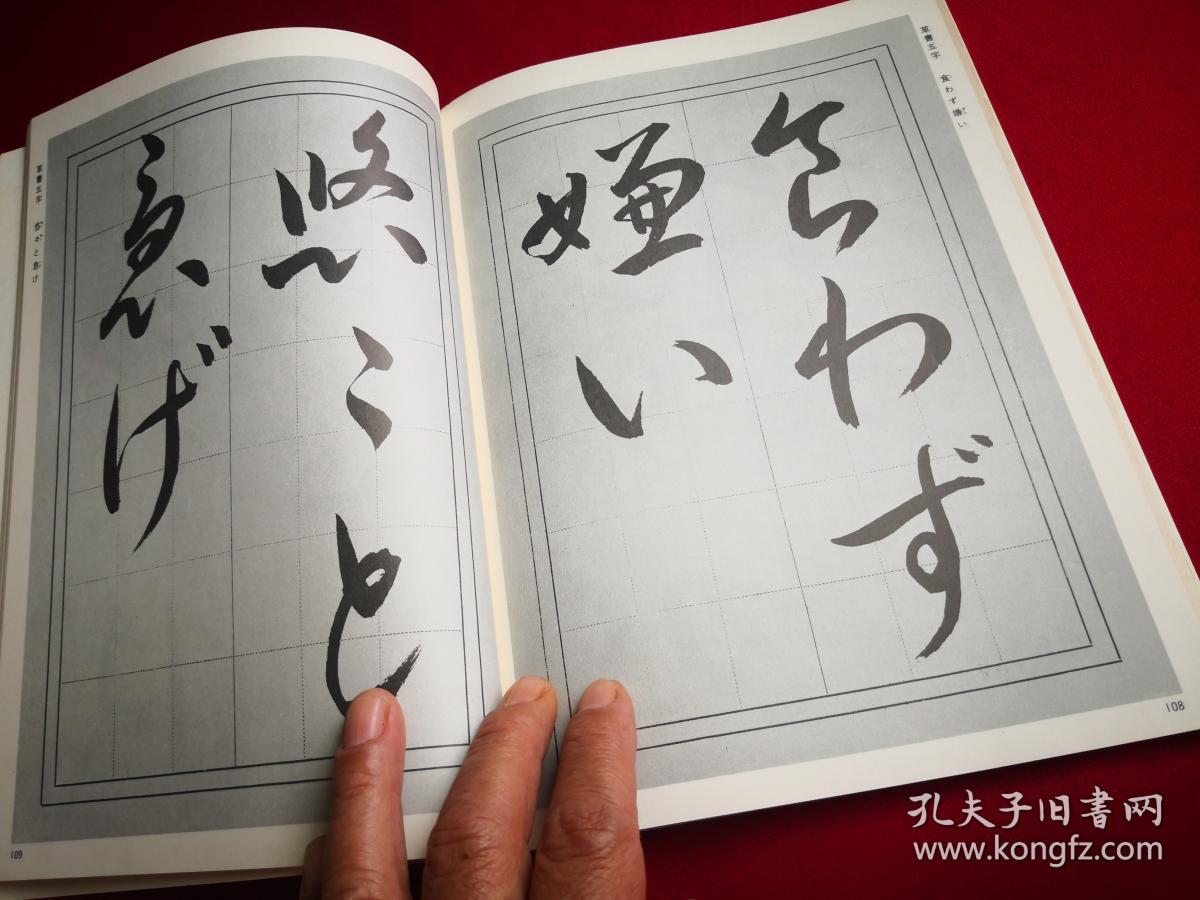 草書五字 食わず嫌い
食わず
嫌い
108
草書五字 悠々と急げ
悠々と
急げ
109
孔夫子旧書网
www.kongfz.com